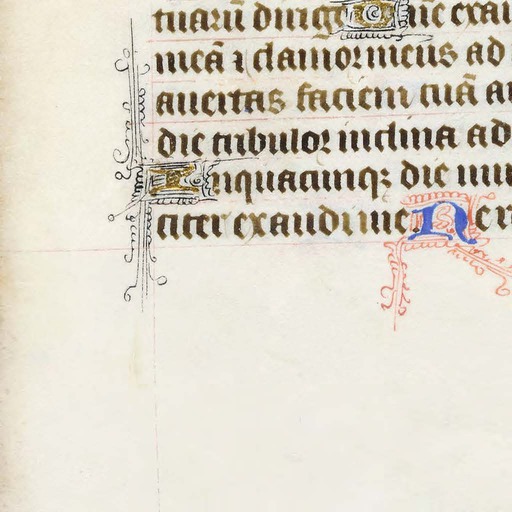 tuarū dirige Dn̄e exau
meā ⁊ clamor meus ad
auertas faciem tuā a
die tribulor inclina ad
Inquacunqꝫ die inu
citer exaudi me. Ne r